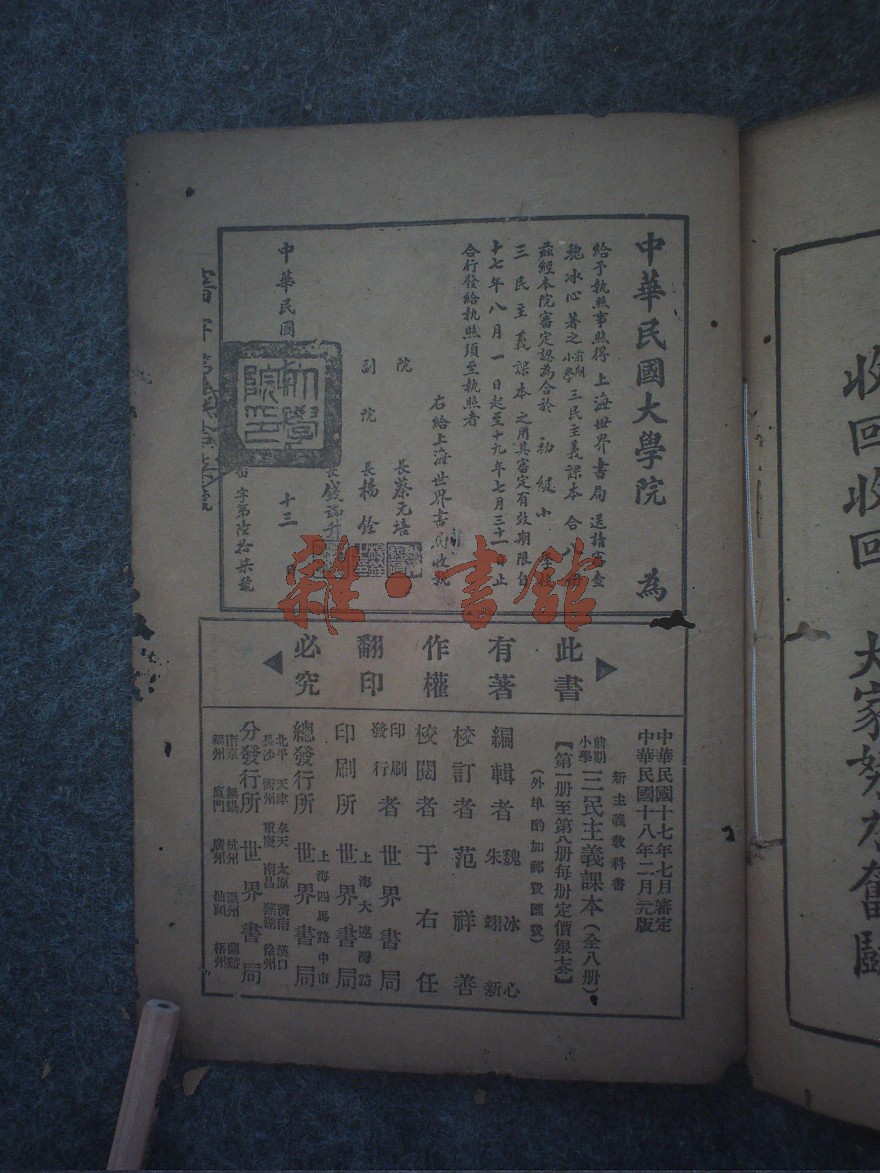 中華民國大學院 為
給予執照事照得 上海世界書局 送請審查
魏冰心著之 前期小學 三民主義課本 合八冊
茲經本院審定認為合於 初級小學校
三民主義課本 之用其審定有效期限自
十七年八月一日起至十九年七月三十一日止
合行發給執照須至執照者
右給上海世界書局收執
院長蔡元培
副院長楊銓
長錢端升
中華民國
十三
字第陸拾柒號
此書有著作權翻印必究
中華民國十七年七月審定
中華民國十八年二月元版
新主義教科書
前期小學 三民主義課本(全八冊)
【第一冊至第八冊每冊定價銀
(外埠酌加郵費匯費)
編輯者 魏冰心 朱翊新
校訂者 范祥善
校閱者 于右任
印刷發行者 世界書局
印刷所 上海大連灣路 世界書局
總發行所 上海四馬路中市 世界書局
北平 天津 奉天 太原 濟南 漢口
長沙 衡州 重慶 南昌 蕪湖 徐州
分發行所 世界書局
南京 無錫 杭州 溫州 蘭谿
福州 廈門 廣州 汕頭 梧州
收回收回 大家努力奮鬬
雜·書館